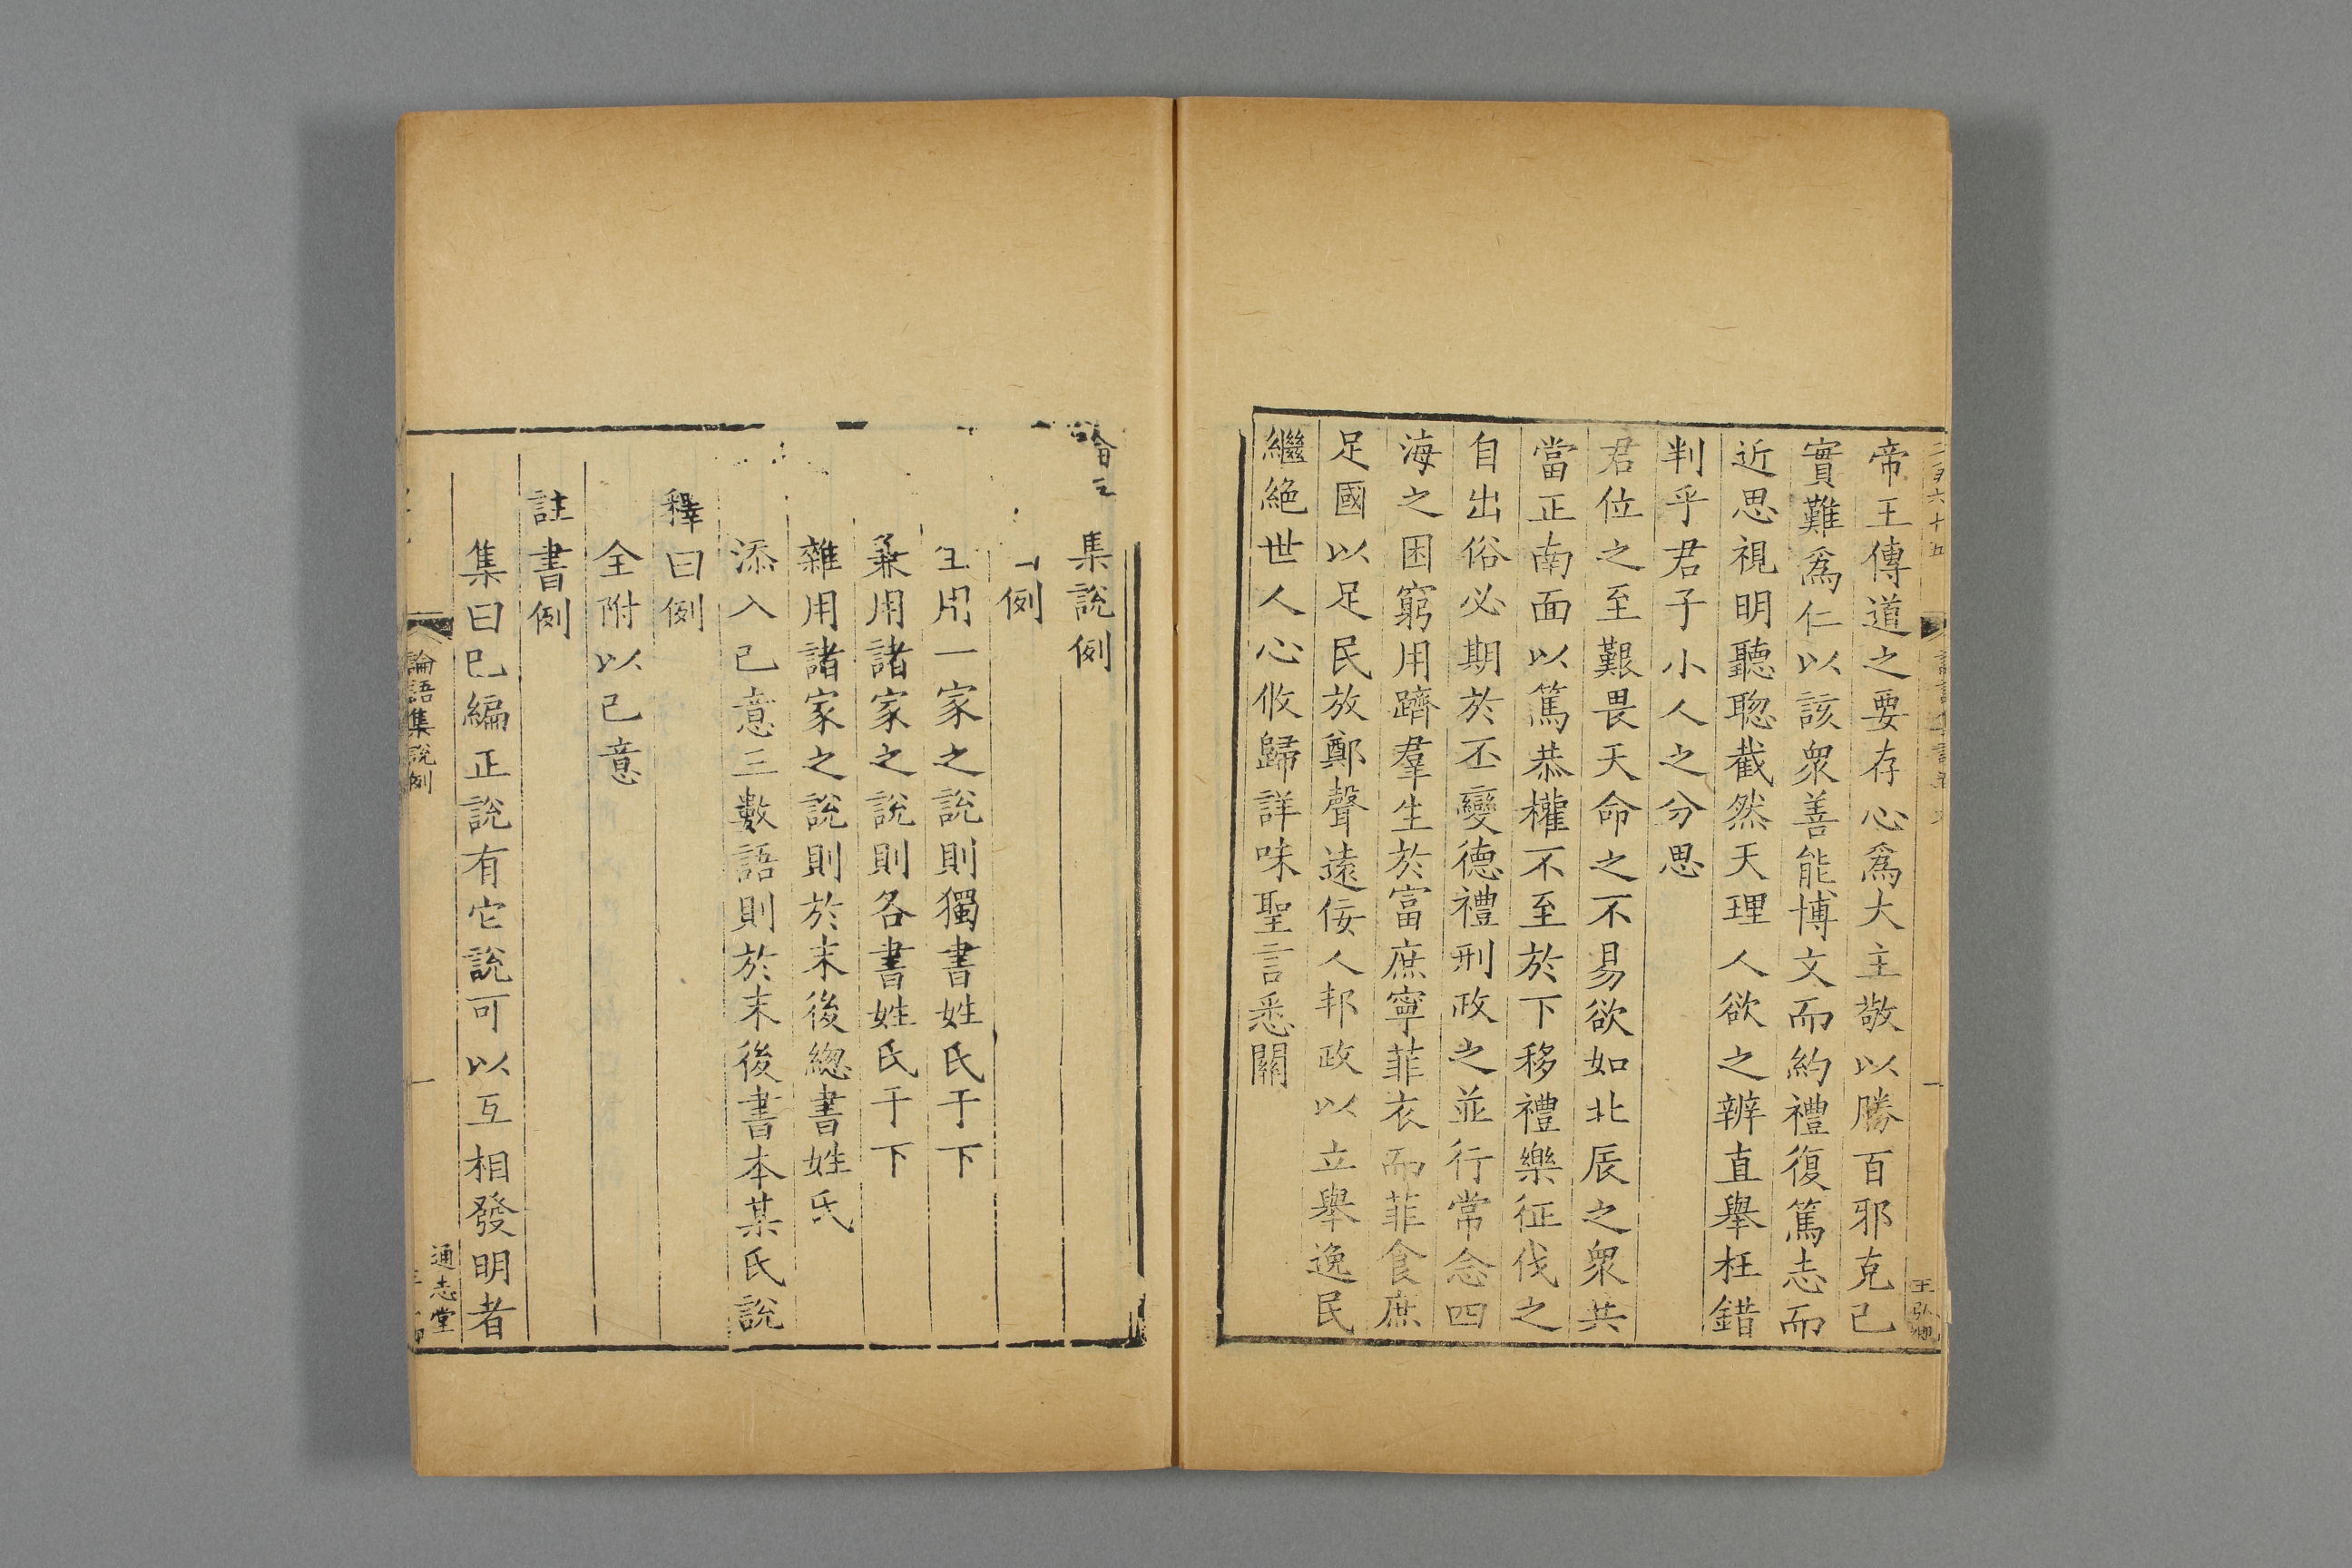 二百六十五
王弘
帝王傳道之要存心爲大主敬以勝百邪克己
實難爲仁以該衆善能博文而約禮復篤志而
近思視明聽聦截然天理人欲之辨直舉枉錯
判乎君子小人之分思
君位之至艱畏天命之不易欲如北辰之衆共
當正南面以篤恭權不至於下移禮樂征伐之
自出俗必期於丕變德禮刑政之並行常念四
海之困窮用躋羣生於富庶寧菲衣而菲食庶
足國以足民放鄭聲遠佞人邦政以立舉逸民
繼絕世人心攸歸詳味聖言悉關
集說例
例
用一家之說則獨書姓氏于下
兼用諸家之說則各書姓氏于下
雜用諸家之說則於末後總書姓氏
添入已意三數語則於末後書本某氏說
釋曰例
全附以已意
註書例
集曰已編正說有它說可以互相發明者
論語集說例
一
通志堂